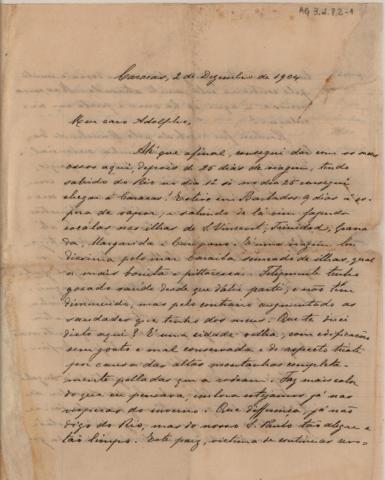 AG 3.2.7.2-1
Caracas, 2 de Dezembro de 1904
Meu caro Adolpho,
Até que afinal, consegui dar com os meus
ossos aqui, depois de 25 dias de viagem, tendo
sahido do Rio no dia 1º só no dia 25 consegui
chegar á Caracas! Estive em Barbados 9 dias á es-
pera de vapor, e sahindo de lá vim fazendo
escalas nas ilhas de S. Vincent, Trinidad, Grana
da, Margarida e Carupano. É uma viagem lin
dissima pelo mar Caraiba semeado de ilhas, qual
a mais bonita e pittoresca. Felizmente tenho
gosado saude desde que dahi parti, e não têm
diminuido, mas pelo contrario augmentado as
saudades que tenho dos meus. Que te direi
disto aqui? É uma cidade velha, com edificações
sem gosto e mal conservada e de aspecto triste
por causa das altas montanhas completa-
mente pelladas que a rodeam. Faz mais calor
do que eu pensava, embora estejamos já nas
vesperas do inverno. Que differença, já não
digo do Rio, mas do nosso S. Paulo tão alegre e
tão limpo. Este paiz, victima de continuas revo-